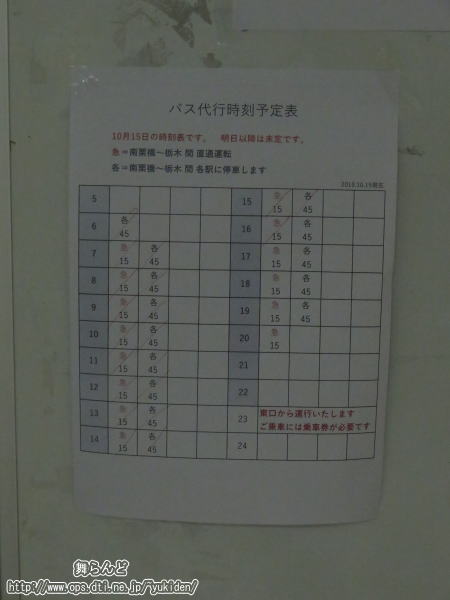 バス代行時刻予定表
10月15日の時刻表です。 明日以降は未定です。
急=南栗橋～栃木 間 直通運転
各=南栗橋～栃木 間 各駅に停車します
2019.10.15現在
5 15 急 各
15 45
6 各 16 急 各
45 15 45
7 急 各 17 急 各
15 45 15 45
8 急 各 18 急 各
15 45 15 45
9 急 各 19 急 各
15 45 15 45
10 急 各 20 急
15 45 15
11 急 各 21
15 45
12 急 各 22
15 45
13 急 各 23 東口から運行いたします
15 45 ご乗車には乗車券が必要です
14 急 各 24
15 45
舞らんど
http://www.ops.dti.ne.jp/~yukiden/